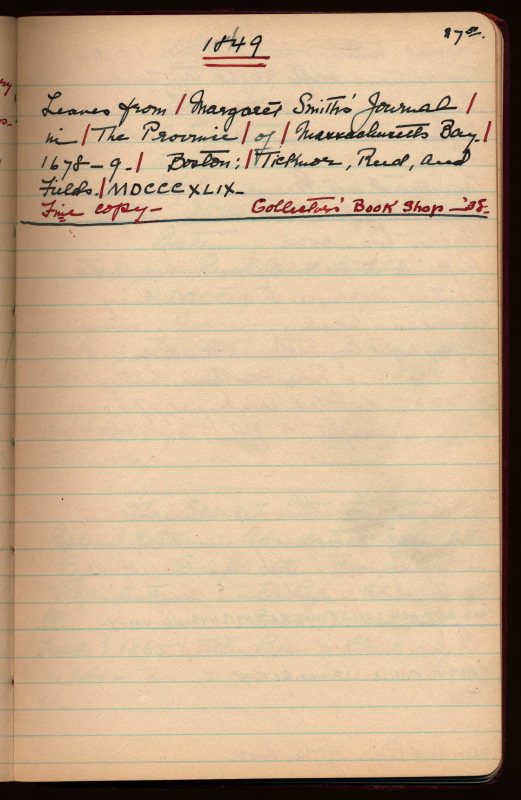 1849
27⁵⁰.
Leaves from | Margaret Smith's Journal |
in | The Province | of | Massachusetts Bay. |
1678-9. | Boston: | Ticknor, Reed, and
Fields. | MDCCCXLIX-
Fine copy- Collectors' Book Shop - '38-